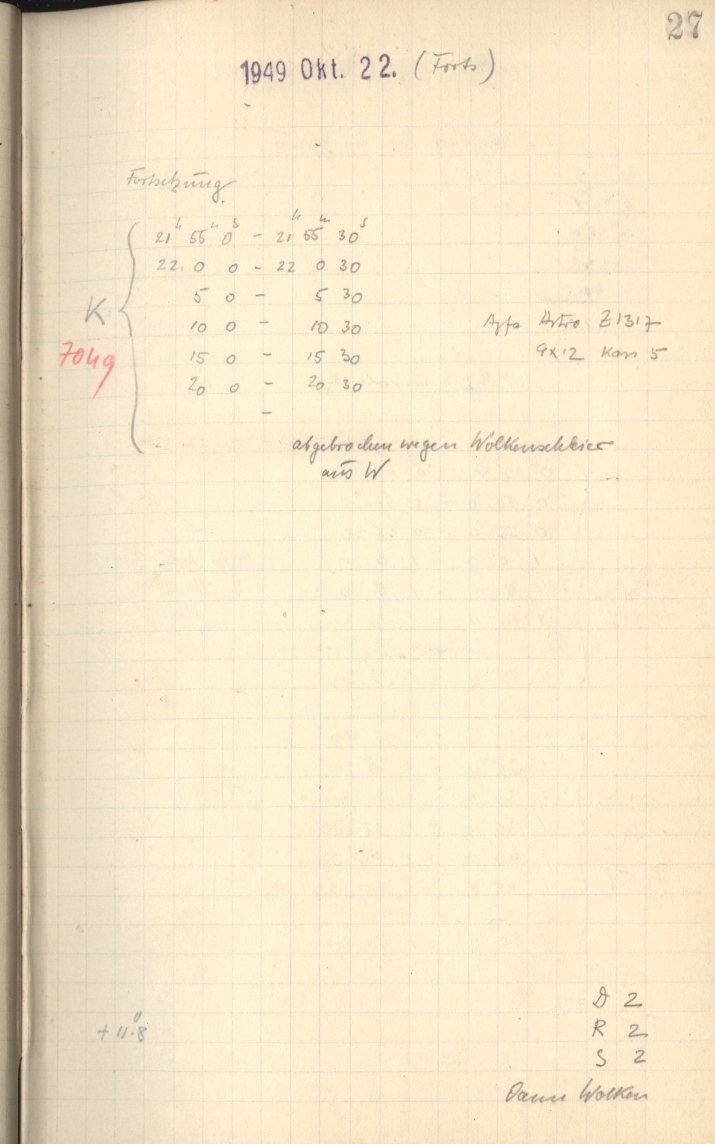 27
1949 Okt. 22. (Forts)
Fortsetzung
21ʰ 55ᵐ 0ˢ - 21ʰ 55ᵐ 30ˢ
22. 0 0 - 22 0 30
5 0 - 5 30
K
10 0 - 10 30
Agfa Astro Z1317
7049
15 0 - 15 30
9x12 Kass 5
20 0 - 20 30
-
abgebrochen wegen Wolkenschleier
aus W
D 2
+11.°8
R 2
S 2
Dann Wolken